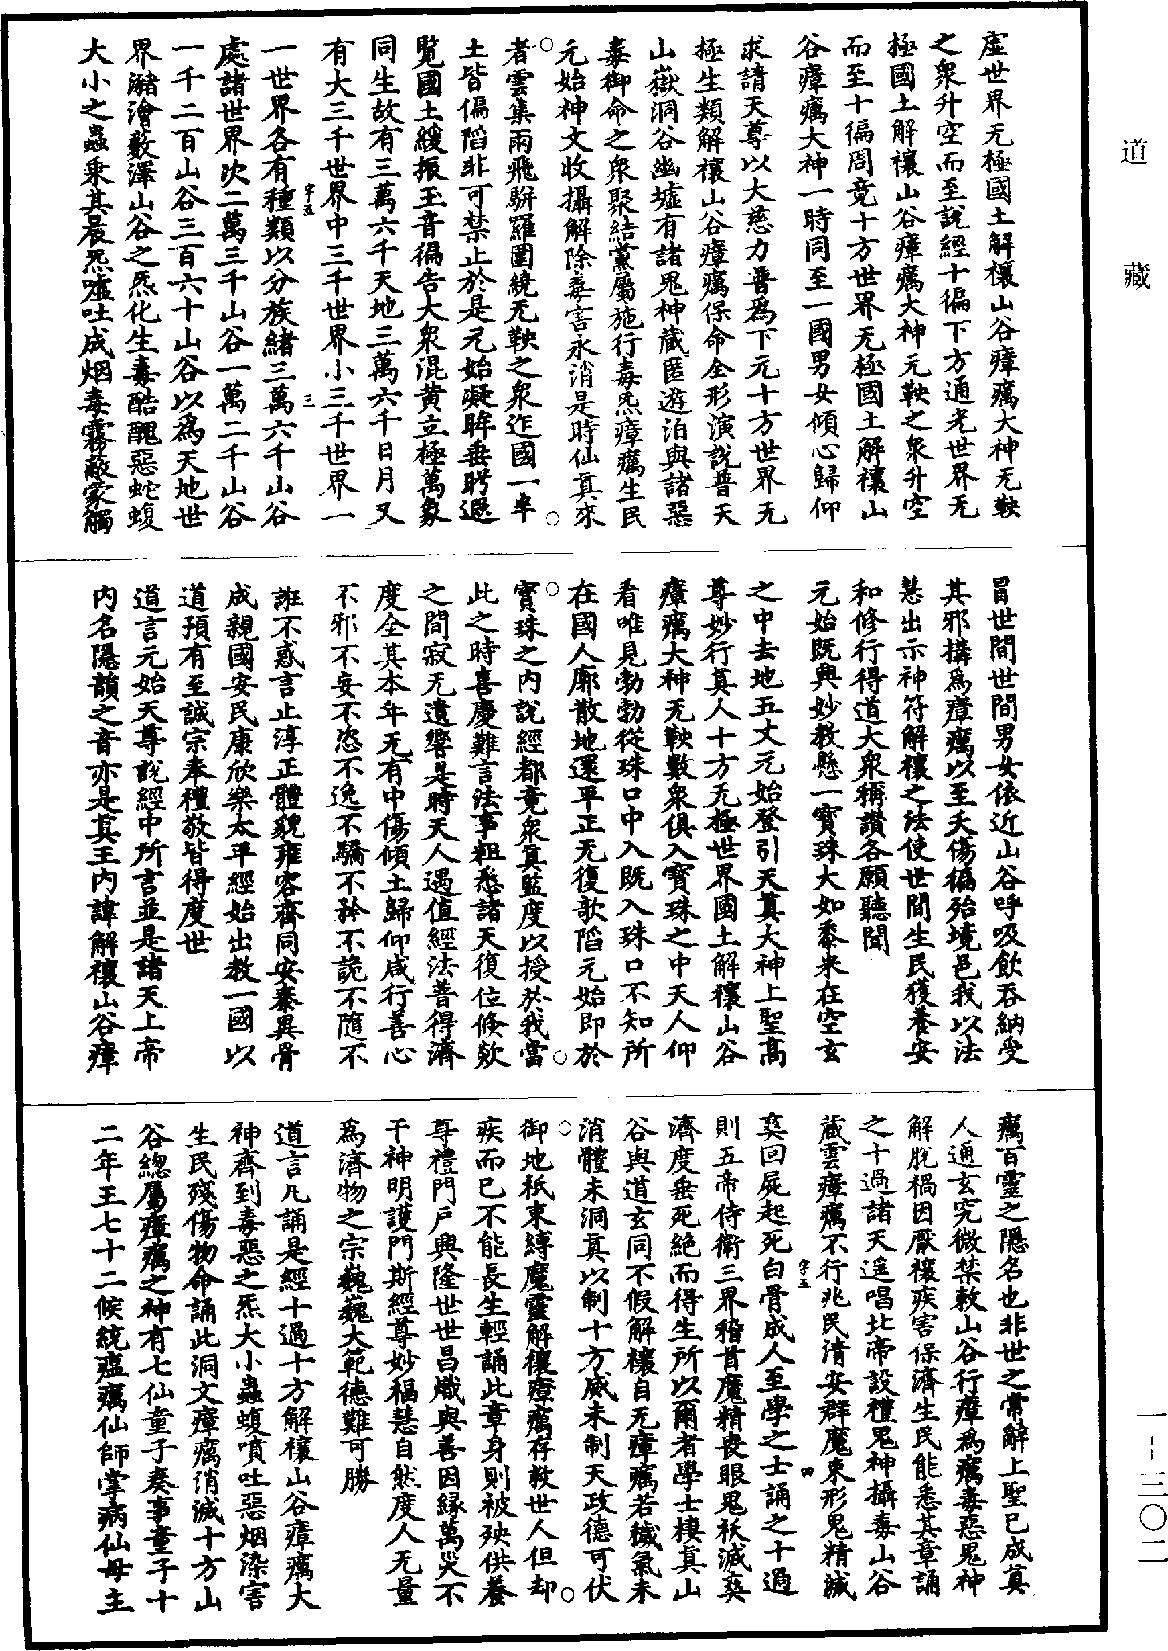 道藏
虛世界无極國土解禳山谷瘴癘大神无鞅
之衆升空而至說經十徧下方通光世界无
極國土解禳山谷瘴癘大神无鞅之衆升空
而至十徧周竟十方世界无極國土解禳山
谷瘴癘大神一時同至一國男女傾心歸仰
求請天尊以大慈力普爲下元十方世界无
極生類解禳山谷瘴癘保命全形演說普天
山嶽洞谷幽墟有諸鬼神藏匿遊泊與諸惡
毒御命之衆聚結黨屬施行毒炁瘴癘生民
元始神文收攝解除毒害永消是時仙真來
者雲集雨飛駢羅圍繞无鞅之衆迮國一半
土皆偏陷非可禁止於是元始凝眸垂眄遐
覽國土緩振玉音徧告大衆混黄立極萬象
同生故有三萬六千天地三萬六千日月又
有大三千世界中三千世界小三千世界一
一世界各有種類以分族緒三萬六千山谷
字五 三
處諸世界次二萬三千山谷一萬二千山谷
一千二百山谷三百六十山谷以爲天地世
界瀦澮藪澤山谷之炁化生毒酷醜惡蛇蝮
大小之蟲乘其晨炁噓吐成烟毒霧蔽蒙觸
冒世間世間男女依近山谷呼吸飲吞納受
其邪搆爲瘴癘以至夭傷徧殆境邑我以法
慧出示神符解禳之法使世間生民獲養安
和修行得道大衆稱讚各願聽聞
元始既興妙教懸一寶珠大如黍米在空玄
之中去地五丈元始登引天真大神上聖高
尊妙行真人十方无極世界國土解禳山谷
瘴癘大神无鞅數衆俱入寶珠之中天人仰
看唯見勃勃從珠口中入既入珠口不知所
在國人廓散地還平正无復欹陷元始即於
寶珠之内說經都竟衆真監度以授於我當
此之時喜慶難言法事粗悉諸天復位倏欻
之間寂无遺響是時天人遇值經法普得濟
度全其本年无有中傷傾土歸仰咸行善心
不邪不妄不恣不逸不驕不矜不詭不隨不
誑不惑言止淳正體貌雍容齊同安泰異骨
成親國安民康欣樂太平經始出教一國以
道預有至誠宗奉禮敬皆得度世
道言元始天尊說經中所言並是諸天上帝
内名隱韻之音亦是真王内諱解禳山谷瘴
癘百靈之隱名也非世之常辭上聖已成真
人通玄究微禁敕山谷行瘴爲癘毒惡鬼神
解脫禍因厭禳疾害保濟生民能悉其章誦
之十過諸天遥唱北帝設禮鬼神攝毒山谷
藏雲瘴癘不行兆民清安群魔束形鬼精滅
爽回屍起死白骨成人至學之士誦之十過
字五 四
則五帝侍衛三界稽首魔精喪眼鬼祅滅爽
濟度垂死絶而得生所以爾者學士棲真山
谷與道玄同不假解禳自无瘴癘若穢氣未
消體未洞真以制十方威未制天政德可伏
御地祇束縛魔靈解禳瘴癘存救世人但却
疾而已不能長生輕誦此章身則被殃供養
尊禮門戶興隆世世昌熾與善因緣萬災不
干神明護門斯經尊妙福慧自然度人无量
爲濟物之宗巍巍大範德難可勝
道言凡誦是經十過十方解禳山谷瘴癘大
神齊到毒惡之炁大小蟲蝮噴吐惡烟染害
生民殘傷物命誦此洞文瘴癘消滅十方山
谷總屬瘴癘之神有七仙童子奏事童子十
二年王七十二候統瘟癘仙師掌病仙母主
一-三〇二